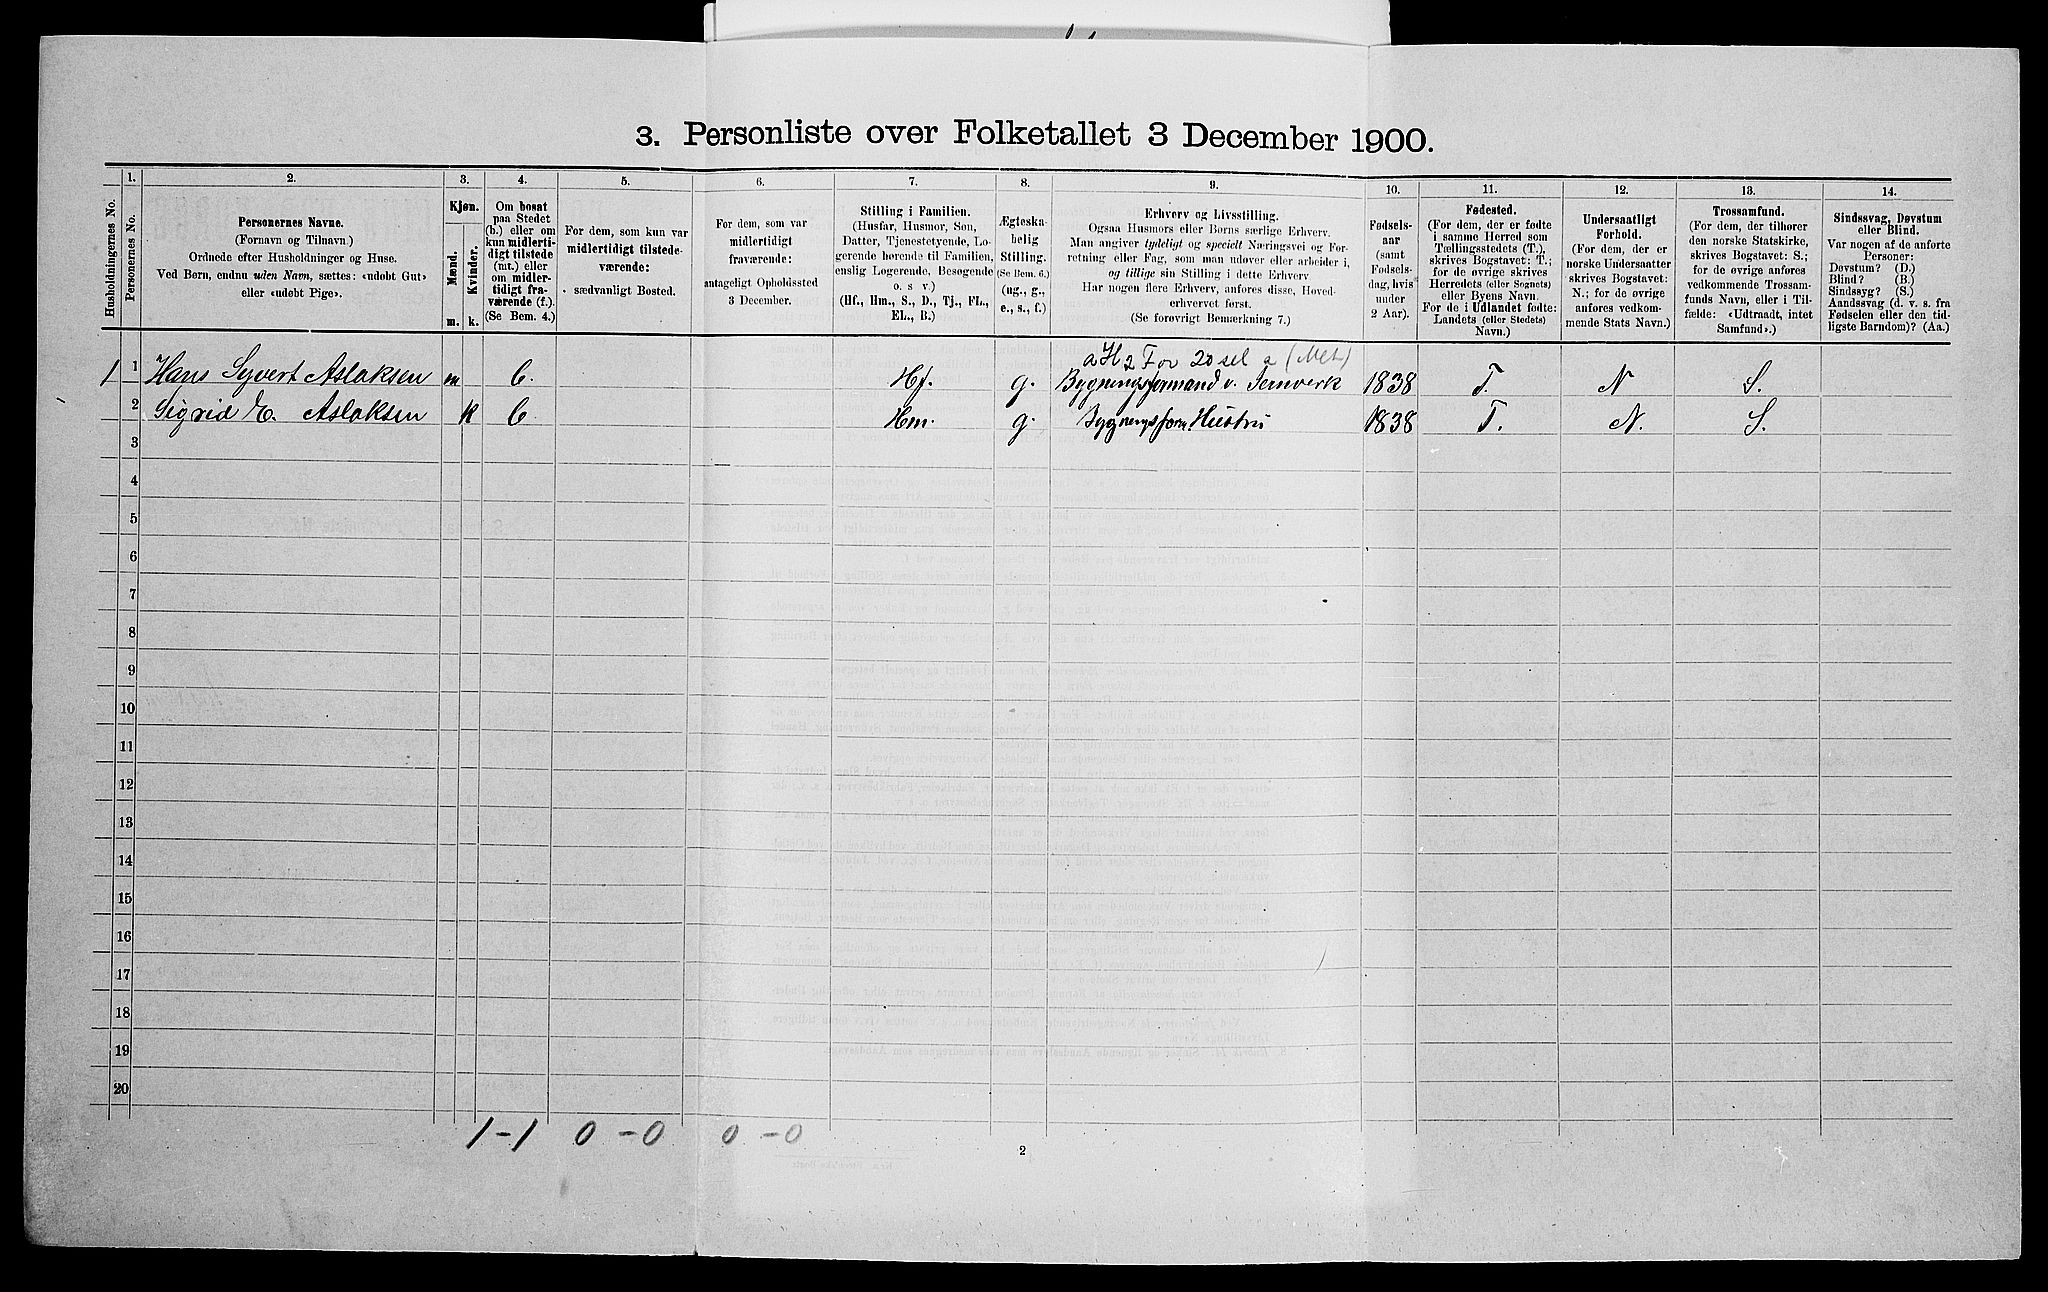 3. Personliste over Folketallet 3 December 1900.
Husholdningernes No.
1.
Personernes No.
2.
Personernes Navne.
(Fornavn og Tilnavn.)
Ordnede efter Husholdninger og Huse.
Ved Børn, endnu uden Navn, sættes: «udøbt Gut»
eller «udøbt Pige».
3.
Kjøn.
Mænd.
m.
Kvinder.
k.
4.
Om bosat
paa Stedet
(b.) eller om
kun midlerti-
digt tilstede
(mt.) eller
om midler-
tidigt fra-
værende (f.).
(Se Bem. 4.)
5.
For dem, som kun var
midlertidigt tilstede-
værende:
sædvanligt Bosted.
6.
For dem, som var
midlertidigt
fraværende:
antageligt Opholdssted
3 December.
7.
Stilling i Familien.
(Husfar, Husmor, Søn,
Datter, Tjenestetyende, Lo-
gerende hørende til Familien,
enslig Logerende, Besøgende
o. s v.)
(Hf., Hm., S., D., Tj., FL.,
EL., B.)
8.
Ægteska-
belig
Stilling.
(Se Bem. 6.)
(ug., g.,
e., s., f.)
9.
Erhverv og Livsstilling.
Ogsaa Husmors eller Børns særlige Erhverv.
Man angiver tydeligt og specielt Næringsvei og For-
retning eller Fag, som man udøver eller arbeider i,
og tillige sin Stilling i dette Erhverv.
Har nogen flere Erhverv, anføres disse, Hoved-
erhvervet først.
(Se forøvrigt Bemærkning 7.)
10.
Fødsels-
aar
(samt
Fødsels-
dag, hvis
under
2 Aar).
11.
Fødested.
(For dem, der er fødte
i samme Herred som
Tællingsstedets (T.),
skrives Bogstavet: T.;
for de øvrige skrives
Herredets (eller Sognets)
eller Byens Navn.
For de i Udlandet fødte:
Landets (eller Stedets)
Navn.)
12.
Undersaatligt
Forhold.
(For dem, der er
norske Undersaatter
skrives Bogstavet:
N.; for de øvrige
anføres vedkom-
mende Stats Navn.)
13.
Trossamfund.
(For dem, der tilhører
den norske Statskirke,
skrives Bogstavet: S.;
for de øvrige anføres
vedkommende Trossam-
funds Navn, eller i Til-
fælde: «Udtraadt, intet
Samfund».)
14.
Sindssvag, Døvstum
eller Blind.
Var nogen af de anførte
Personer:
Døvstum? (D.)
Blind? (B.)
Sindssyg? (S.)
Aandssvag (d. v. s. fra
Fødselen eller den tid-
ligste Barndom)? (Aa.)
a H2 For 20 sel a (Met)
1 1 Hans Syvert Aslaksen m b. Hf. g. Bygningsformand v. Jernverk 1838 T. N S.
2 Sigrid E. Aslaksen k b Hm. g. Bygningsform Hustru 1838 T. N. S.
3
4
5
6
7
8
9
10
11
12
13
14
15
16
17
18
19
20
1-1 0-0 0-0
2